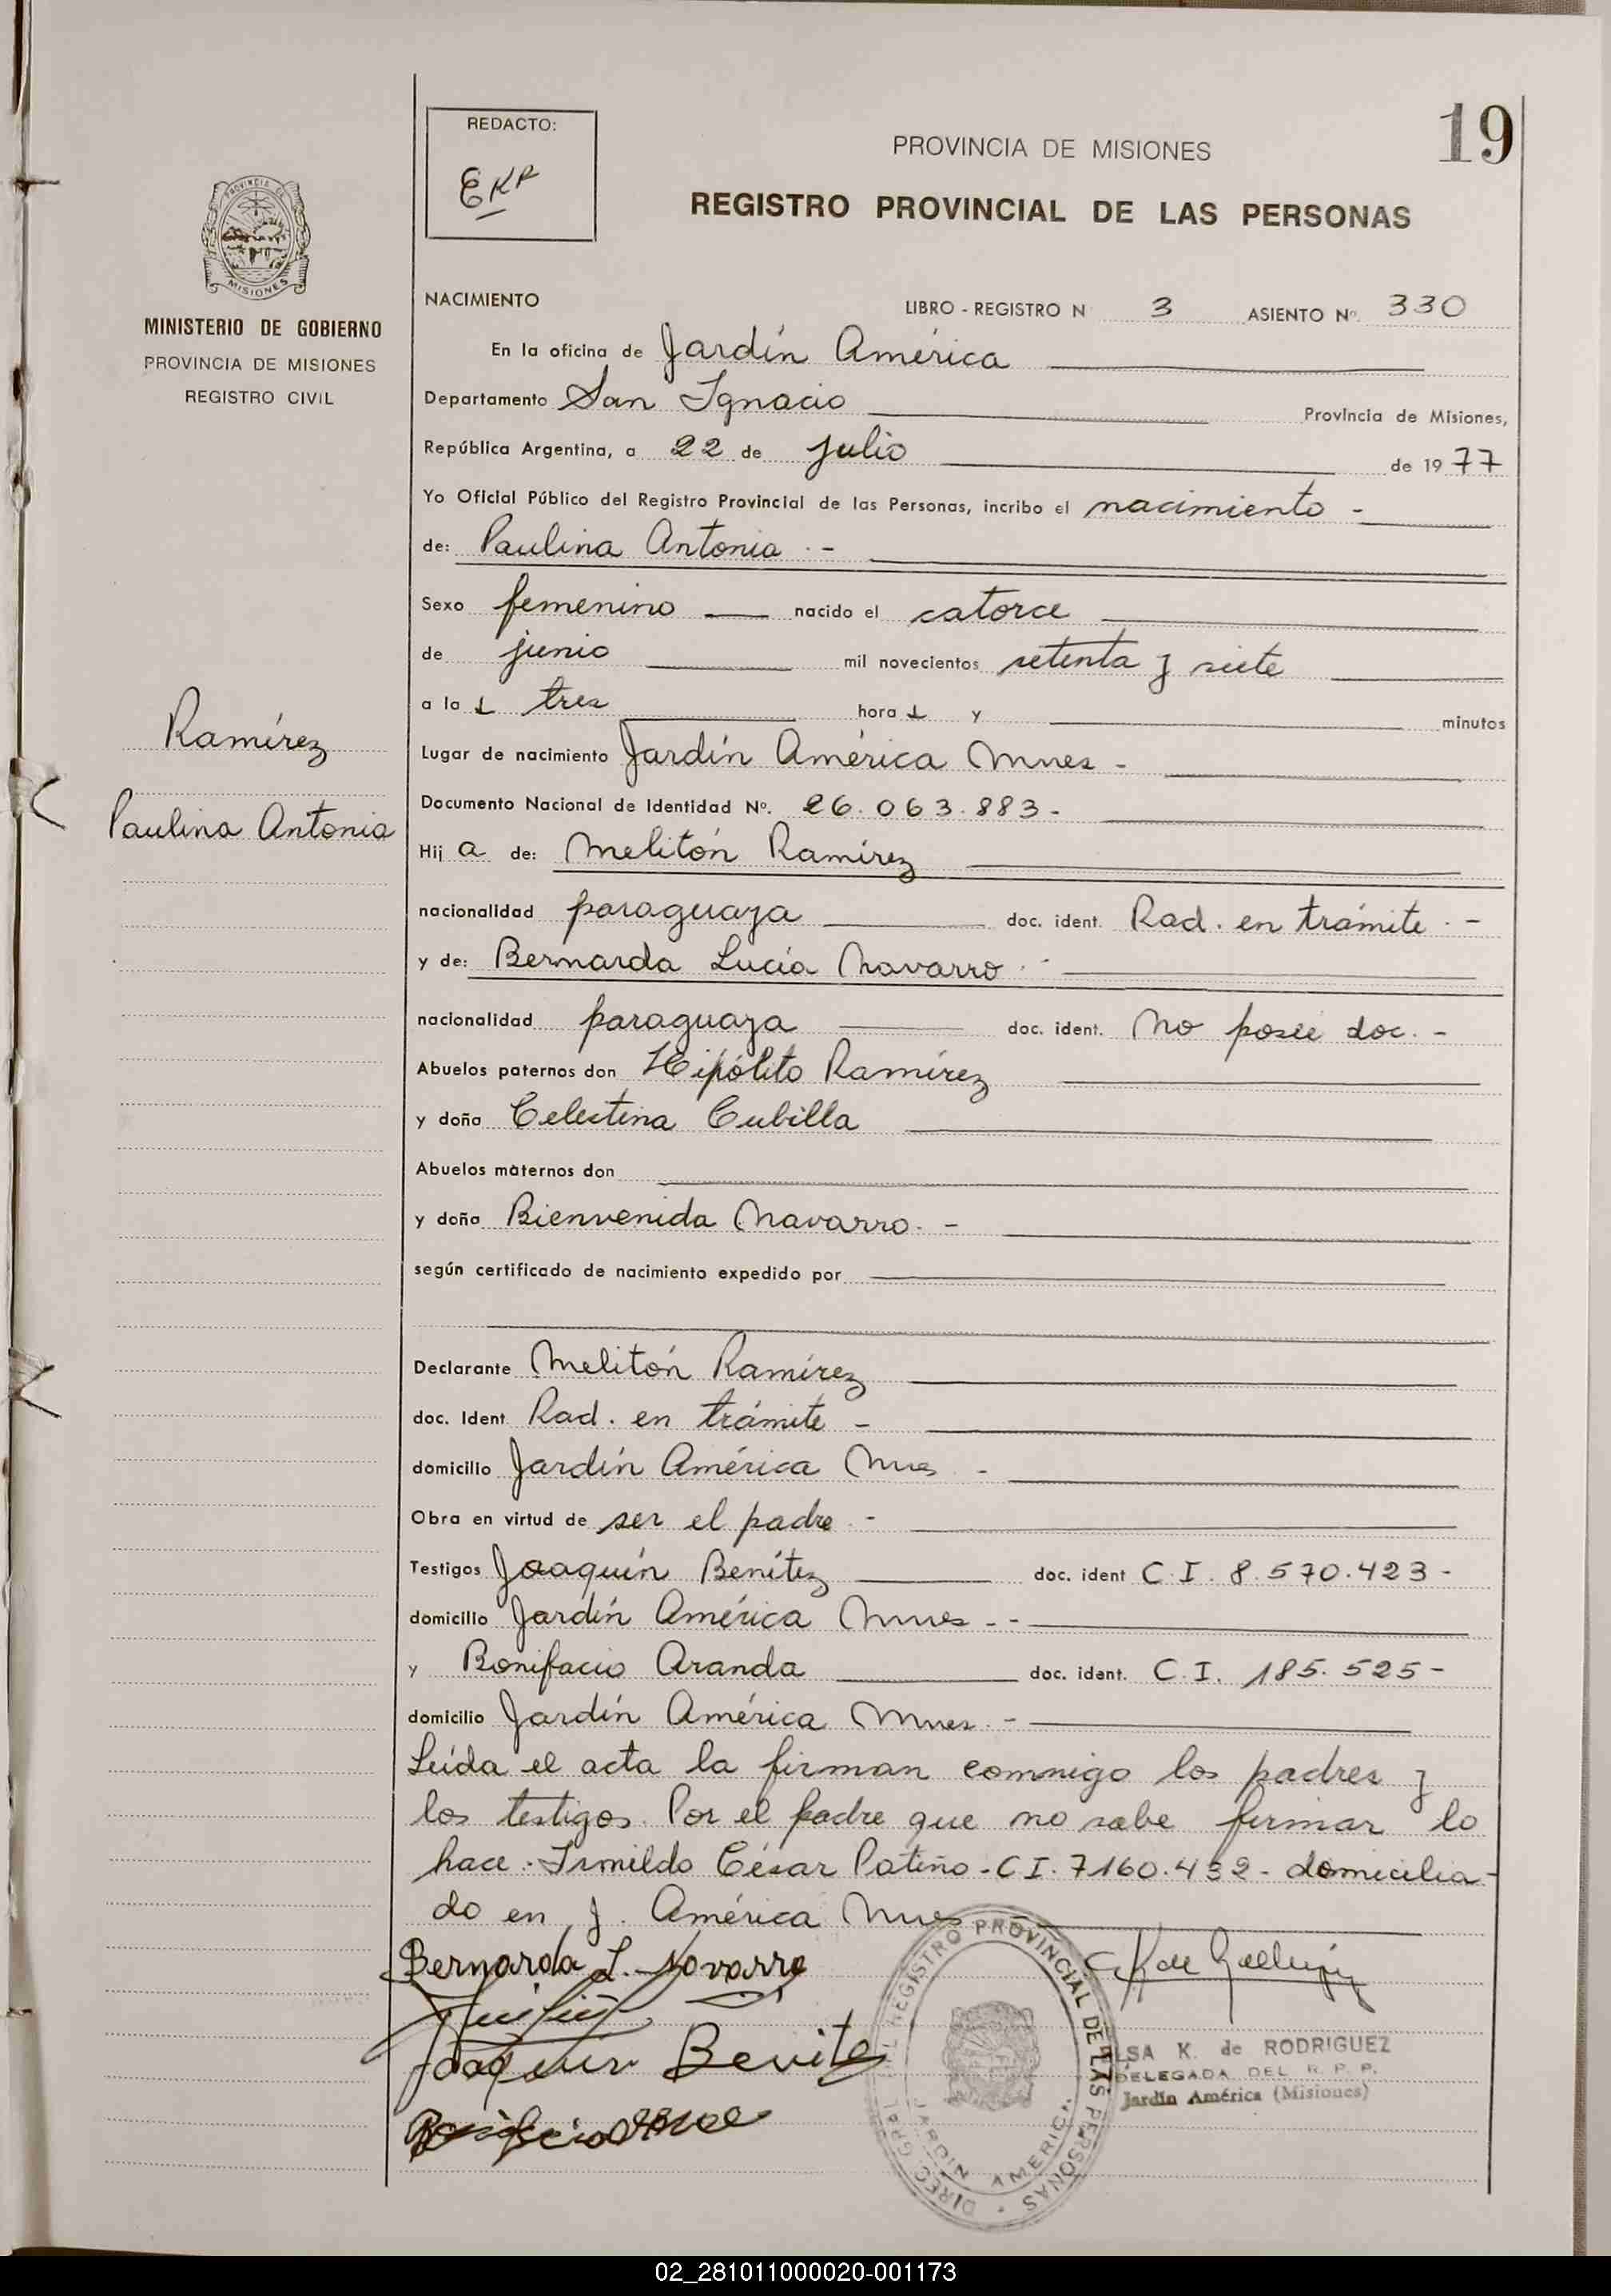 19
REDACTO:
EKR
PROVINCIA DE MISIONES
REGISTRO PROVINCIAL DE LAS PERSONAS
PROVINCIA DE
MISIONES
MINISTERIO DE GOBIERNO
PROVINCIA DE MISIONES
REGISTRO CIVIL
Ramírez
Paulina Antonia
NACIMIENTO LIBRO - REGISTRO N 3 ASIENTO Nº. 330
En la oficina de Jardín América
Departamento San Ignacio Provincia de Misiones,
República Argentina, a 22 de julio de 1977
Yo Oficial Público del Registro Provincial de las Personas, incribo el nacimiento -
de: Paulina Antonia . -
Sexo femenino nacido el catorce
de junio mil novecientos setenta y siete
a la s tres hora s y minutos
Lugar de nacimiento Jardín América Mnes -
Documento Nacional de Identidad Nº. 26.063.883 -
Hij a de: Melitón Ramírez
nacionalidad paraguaya doc. ident. Rad. en trámite . -
y de: Bernarda Lucía Navarro . -
nacionalidad paraguaya doc. ident. No posee doc. -
Abuelos paternos don Hipólito Ramírez
y doña Celestina Cubilla
Abuelos maternos don
y doña Bienvenida Navarro . -
según certificado de nacimiento expedido por
Declarante Melitón Ramírez
doc. Ident Rad. en trámite -
domicilio Jardín América Mnes -
Obra en virtud de ser el padre . -
Testigos Joaquín Benítez doc. ident C.I. 8.570.423 -
domicilio Jardín América Mnes . -
y Bonifacio Aranda doc. ident. C.I. 185.525 -
domicilio Jardín América Mnes . -
Leída el acta la firman conmigo los padres y
los testigos. Por el padre que no sabe firmar lo
hace . Irmildo César Patiño - C I. 7160.432 - domicilia-
do en J. América Mnes
Bernarda L. Navarro
Joaquin Benite
ELSA K. de RODRIGUEZ
DELEGADA DEL R. P. P.
Jardín América (Misiones)
DIREC. GRAL. DEL REGISTRO PROVINCIAL DE LAS PERSONAS
JARDIN AMERICA
02_281011000020-001173